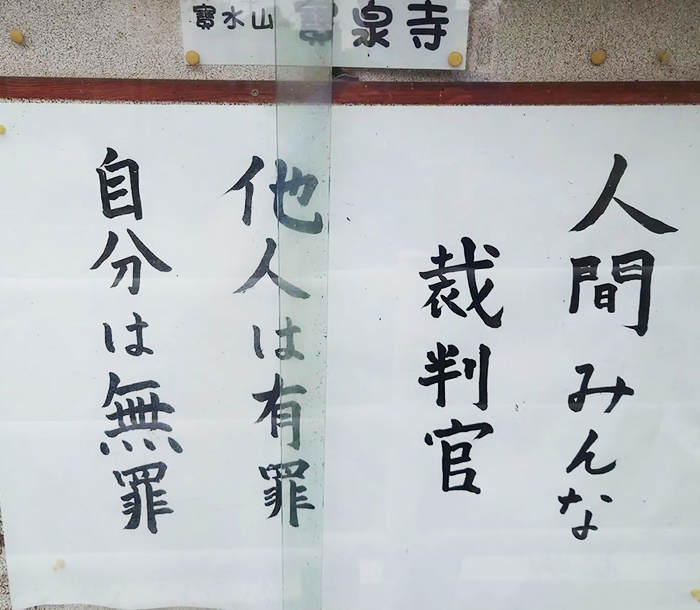 寳水山 寳泉寺
人間みんな
裁判官
他人は有罪
自分は無罪